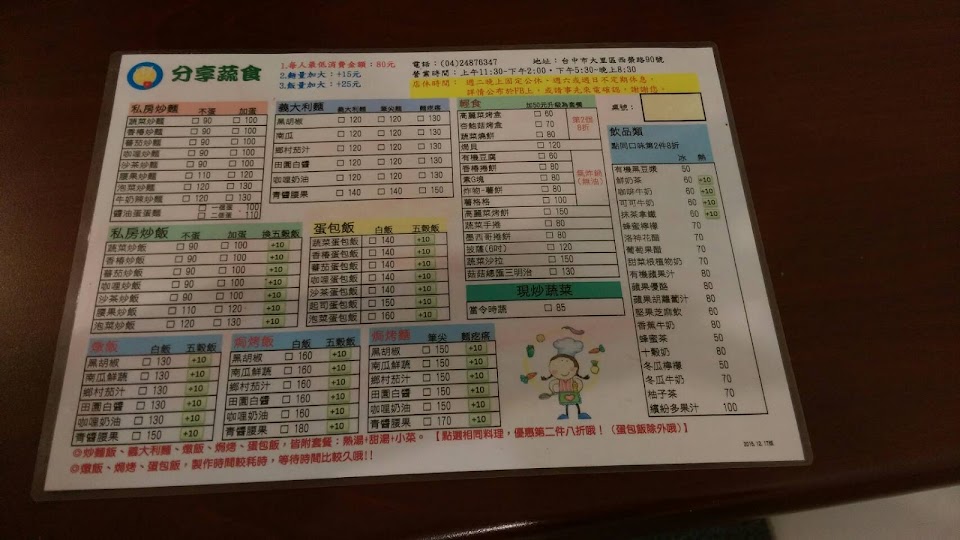 分享蔬食
1.每人最低消費金額：80元
2.麵量加大：+15元
3.飯量加大：+25元
電話：(04)24876347 地址：台中市大里區西榮路90號
營業時間：上午11:30-下午2:00，下午5:30-晚上8:30
店休時間：週二晚上固定公休，週六或週日不定期休息，
詳情公布於FB上，或請事先來電確認，謝謝您。
桌號：
私房炒麵 不蛋 加蛋
蔬菜炒麵 □ 90 □ 100
香椿炒麵 □ 90 □ 100
蕃茄炒麵 □ 90 □ 100
咖哩炒麵 □ 90 □ 100
沙茶炒麵 □ 90 □ 100
腰果炒麵 □ 110 □ 120
泡菜炒麵 □ 120 □ 130
牛奶鍋炒麵 □ 120 □ 130
醬油蛋蛋麵 □ 一個蛋 100
□ 二個蛋 110
義大利麵 義大利麵 筆尖麵 麵疙瘩
黑胡椒 □ 120 □ 120 □ 130
南瓜 □ 120 □ 120 □ 130
鄉村茄汁 □ 120 □ 120 □ 130
田園白醬 □ 120 □ 120 □ 130
咖哩奶油 □ 120 □ 120 □ 130
青醬腰果 □ 140 □ 140 □ 150
輕食 加50元升級為套餐
高麗菜烤盒 □ 60
杏鮑菇烤盒 □ 70
蔬菜燒餅 □ 80
第2個
8折
燒貝 □ 120
有機豆腐 □ 60
香椿捲餅 □ 80
素G塊 □ 80
炸物-薯餅 □ 80
薯格格 □ 100
氣炸鍋
(無油)
高麗菜烤餅 □ 150
蔬菜手捲 □ 80
墨西哥捲餅 □ 80
披薩(6吋) □ 120
蔬菜沙拉 □ 150
菇菇總匯三明治 □ 130
現炒蔬菜
當令時蔬 □ 85
飲品類
點同口味第2件8折
冰 熱
有機黑豆漿 50
鮮奶茶 60 +10
咖啡牛奶 60 +10
可可牛奶 60 +10
抹茶拿鐵 60 +10
蜂蜜檸檬 70
洛神花醋 70
葡萄果醋 70
甜菜根植物奶 70
有機蘋果汁 80
蘋果優酪 80
蘋果胡蘿蔔汁 60
堅果芝麻飲 60
香蕉牛奶 80
蜂蜜茶 50
十穀奶 80
冬瓜檸檬 50
冬瓜牛奶 70
柚子茶 70
繽紛多果汁 100
私房炒飯 不蛋 加蛋 換五穀飯
蔬菜炒飯 □ 90 □ 100 +10
香椿炒飯 □ 90 □ 100 +10
蕃茄炒飯 □ 90 □ 100 +10
咖哩炒飯 □ 90 □ 100 +10
沙茶炒飯 □ 90 □ 100 +10
腰果炒飯 □ 110 □ 120 +10
泡菜炒飯 □ 120 □ 130 +10
蛋包飯 白飯 五穀飯
蔬菜蛋包飯 □ 140 +10
香椿蛋包飯 □ 140 +10
蕃茄蛋包飯 □ 140 +10
咖哩蛋包飯 □ 140 +10
沙茶蛋包飯 □ 140 +10
起司蛋包飯 □ 150 +10
泡菜蛋包飯 □ 160 +10
燉飯 白飯 五穀飯
黑胡椒 □ 130 +10
南瓜鮮蔬 □ 130 +10
鄉村茄汁 □ 130 +10
田園白醬 □ 130 +10
咖哩奶油 □ 130 +10
青醬腰果 □ 150 +10
焗烤飯 白飯 五穀飯
黑胡椒 □ 160 +10
南瓜鮮蔬 □ 160 +10
鄉村茄汁 □ 160 +10
田園白醬 □ 160 +10
咖哩奶油 □ 160 +10
青醬腰果 □ 180 +10
焗烤麵 筆尖 麵疙瘩
黑胡椒 □ 150 +10
南瓜鮮蔬 □ 150 +10
鄉村茄汁 □ 150 +10
田園白醬 □ 150 +10
咖哩奶油 □ 150 +10
青醬腰果 □ 170 +10
◎炒麵飯、義大利麵、燉飯、焗烤、蛋包飯，皆附套餐：熱湯+甜湯+小菜。【點選相同料理，優惠第二件八折哦！（蛋包飯除外哦）】
◎燉飯、焗烤、蛋包飯，製作時間較耗時，等待時間比較久哦!!